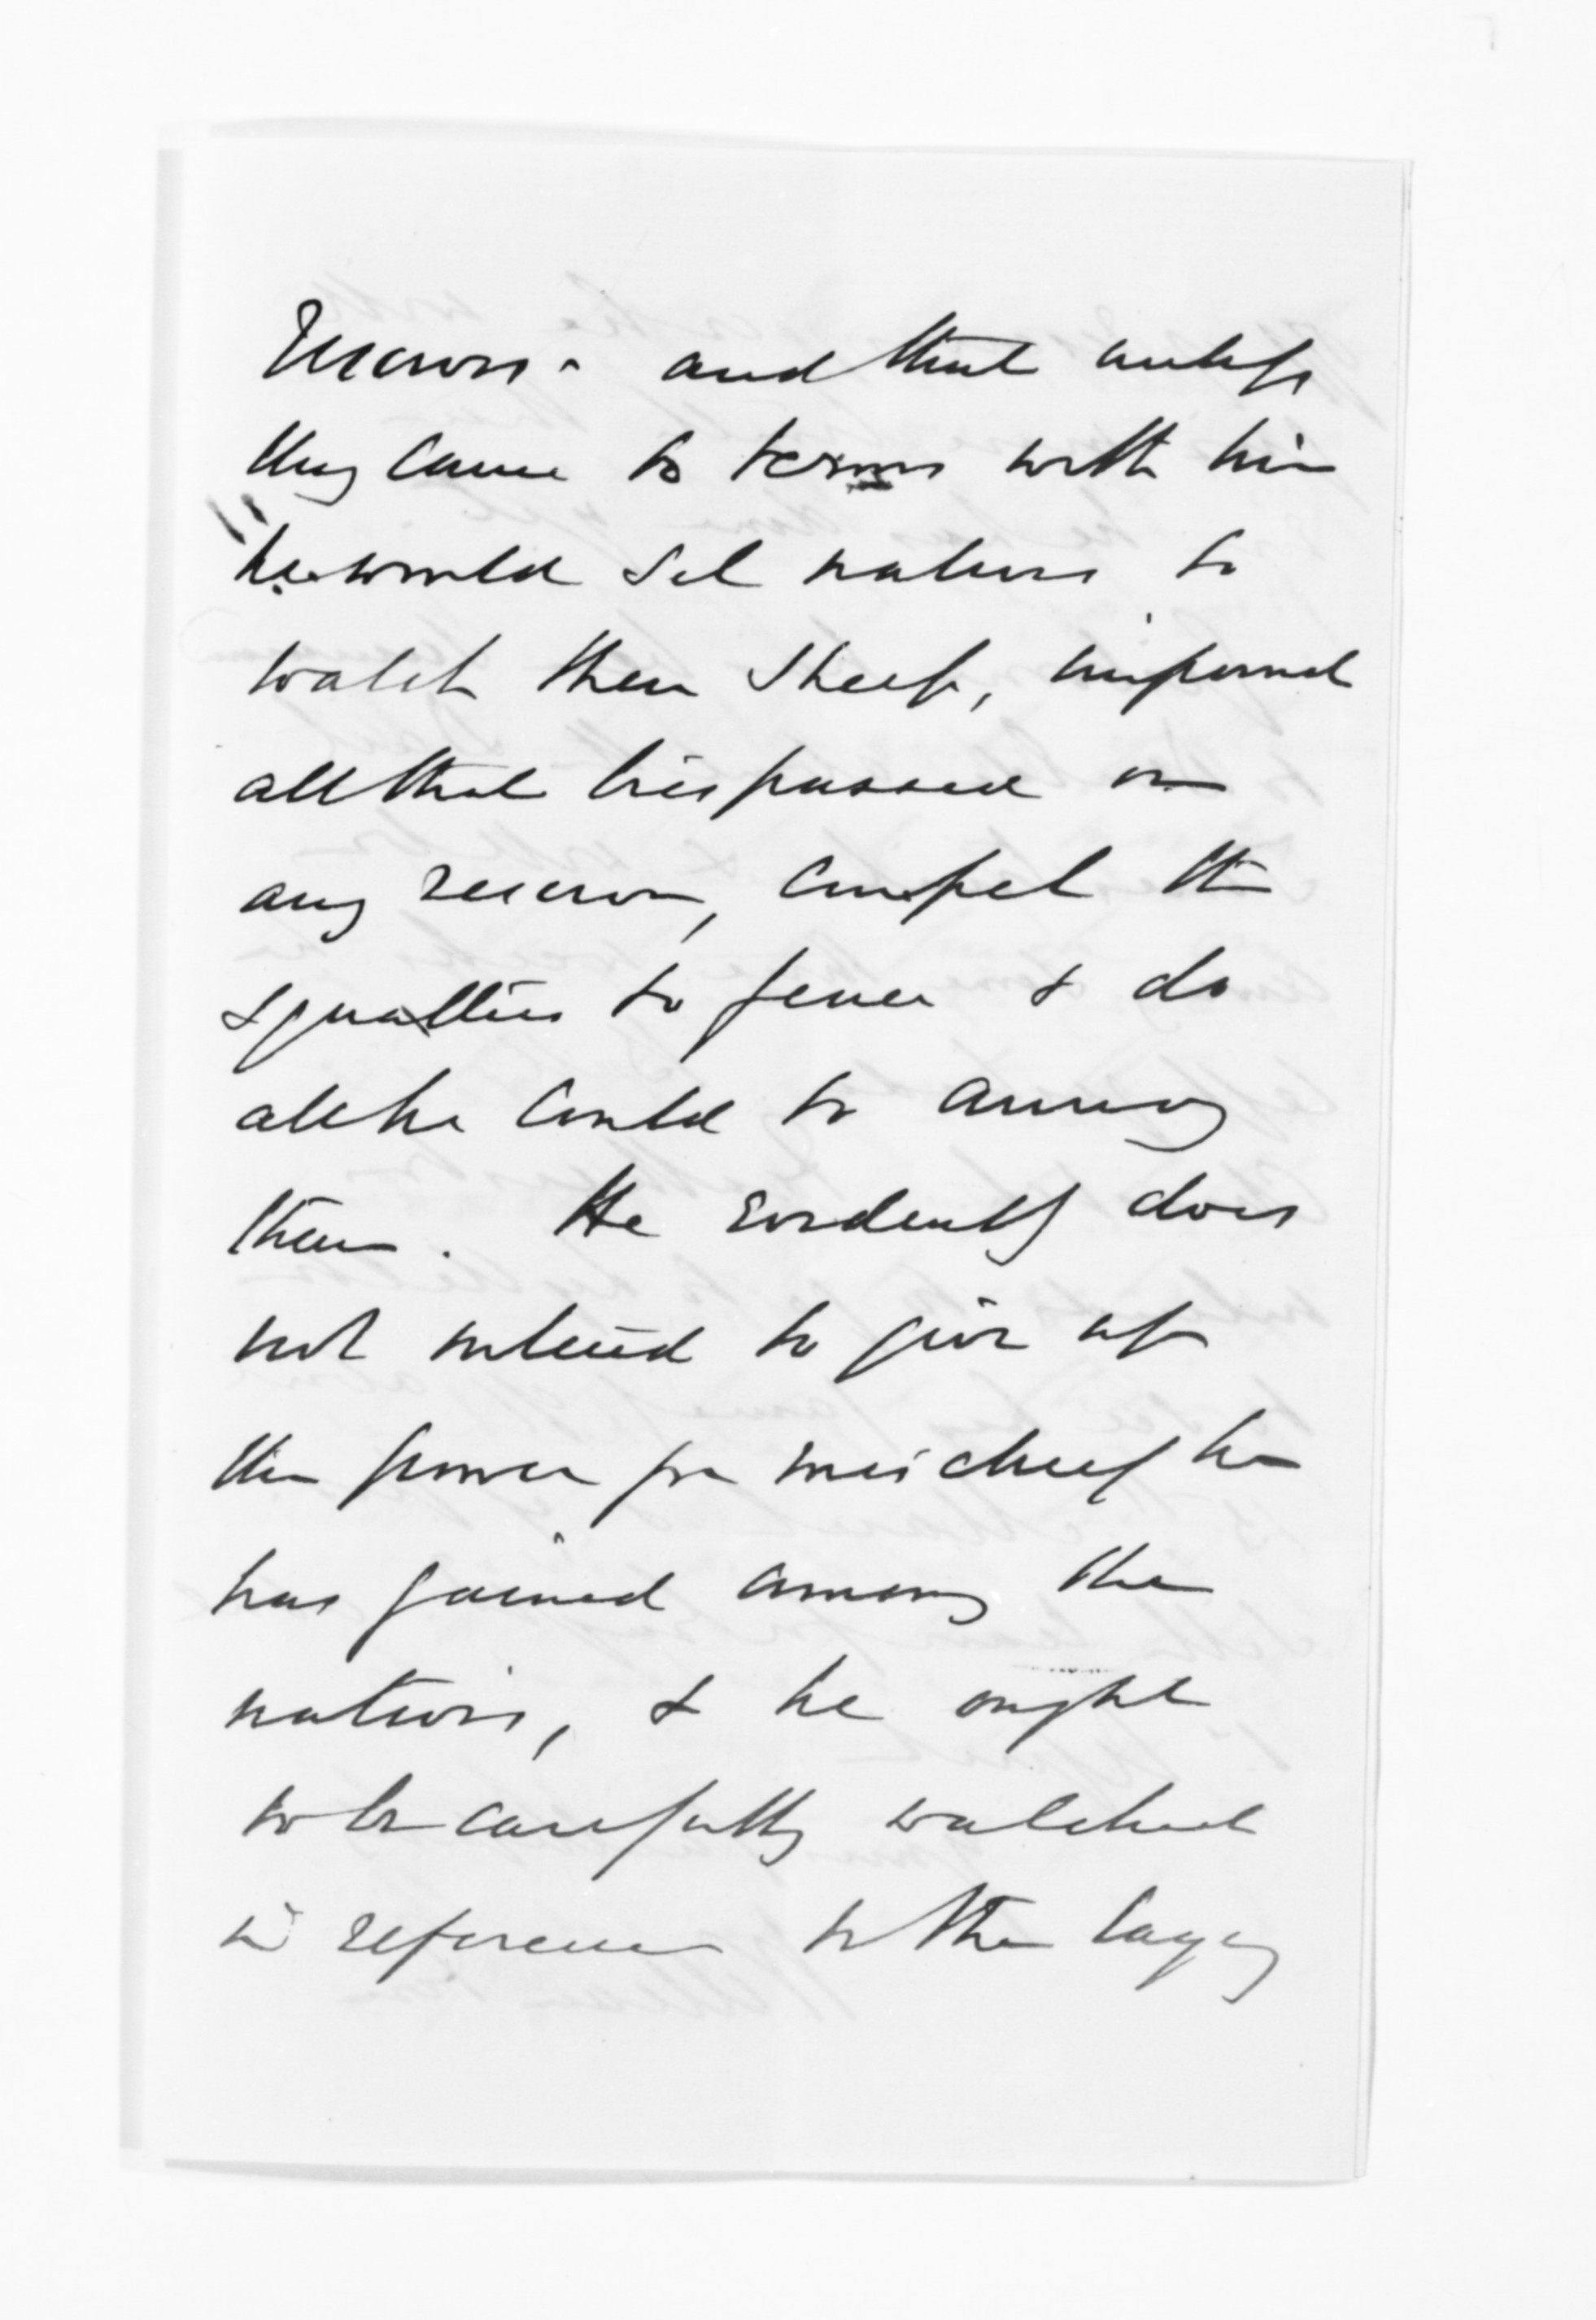 Reserves - and that unless
they came to terms with him
he would set natives to
watch their sheep, impound
all that trespassed on
any reserve, compel the
squatters to fence & do
all he could to annoy
them. He evidently does
not intend to give up
the power for mischief he
has gained among the
natives, & he ought
to be carefully watched
in reference to the